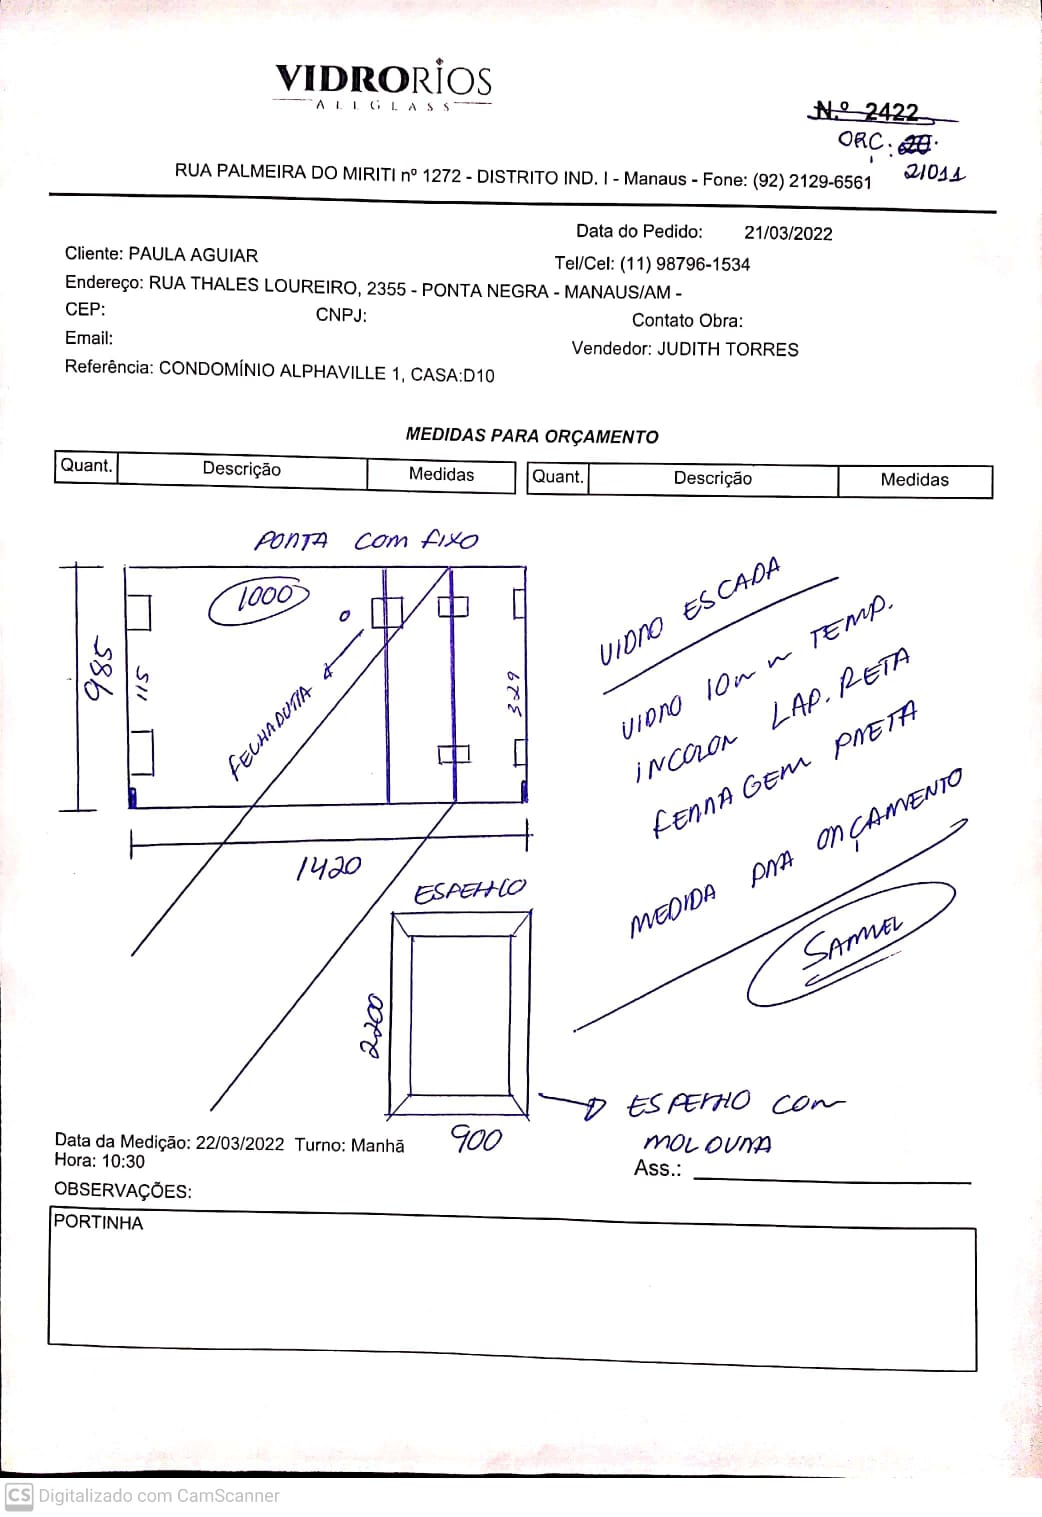 VIDRORIOS
ALLGLASS
N.º 2422
ORC: 20.
21011
RUA PALMEIRA DO MIRITI nº 1272 - DISTRITO IND. I - Manaus - Fone: (92) 2129-6561
Data do Pedido: 21/03/2022
Cliente: PAULA AGUIAR
Tel/Cel: (11) 98796-1534
Endereço: RUA THALES LOUREIRO, 2355 - PONTA NEGRA - MANAUS/AM -
CEP: CNPJ: Contato Obra:
Email:
Vendedor: JUDITH TORRES
Referência: CONDOMÍNIO ALPHAVILLE 1, CASA:D10
MEDIDAS PARA ORÇAMENTO
Quant. Descrição Medidas Quant. Descrição Medidas
PORTA COM FIXO
1000
985
115
329
FECHADURA
1420
VIDRO ESCADA
VIDRO 10mm TEMP.
INCOLOR LAP. RETA
FERRAGEM PRETA
MEDIDA PRA ORÇAMENTO
SAMUEL
ESPELHO
2200
900
ESPELHO COM
MOLDURA
Data da Medição: 22/03/2022 Turno: Manhã
Hora: 10:30
Ass.:
OBSERVAÇÕES:
PORTINHA
CS Digitalizado com CamScanner